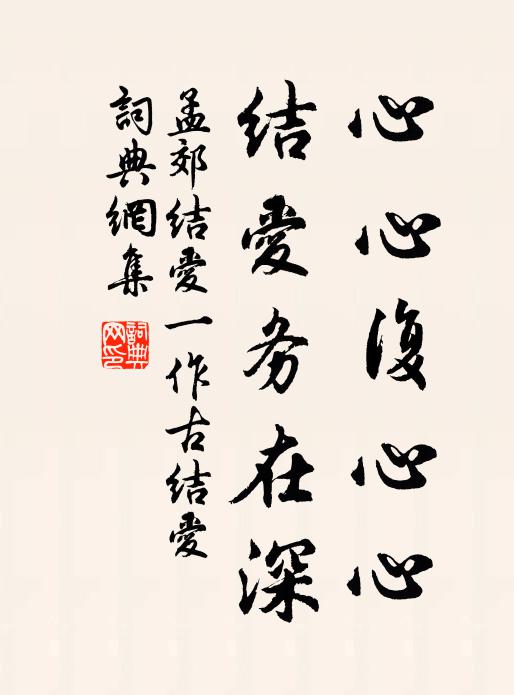 心心復心心
结愛务在深
孟郊结愛一作古结愛
詞典網集
詞典网印